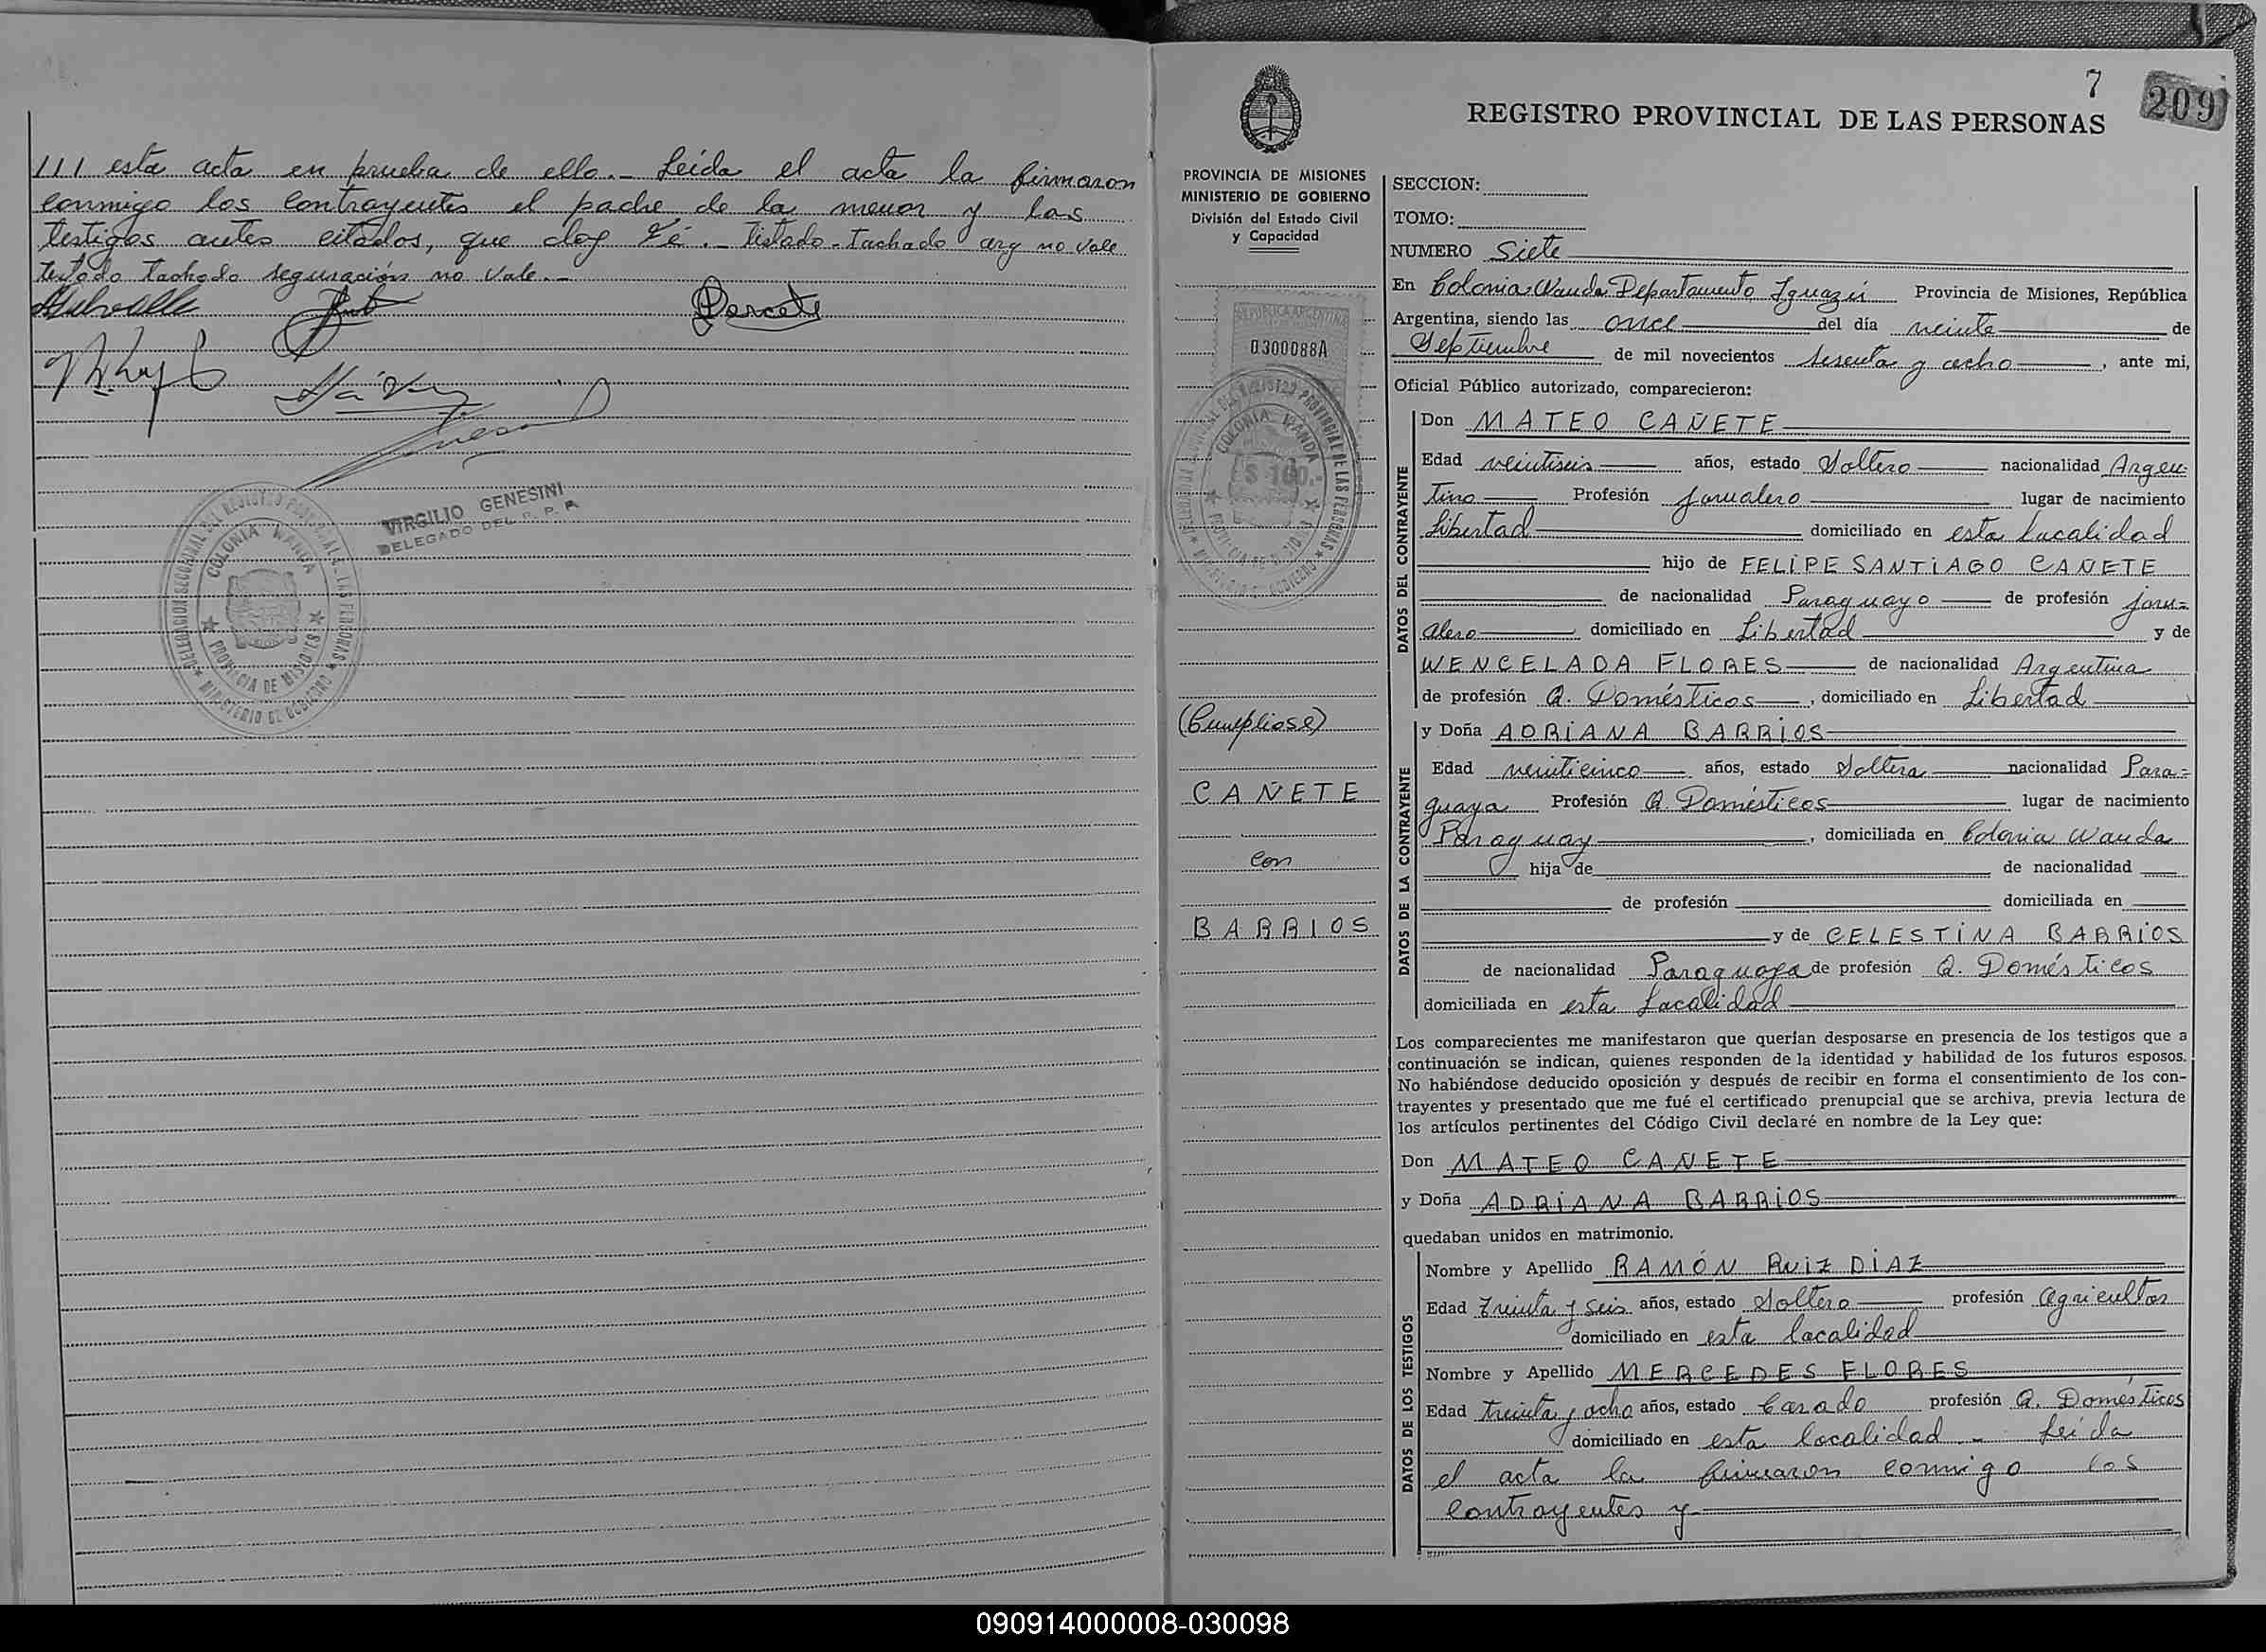 111 esta acta en prueba de ello.- Leida el acta la firmaron
conmigo los Contrayentes el padre de la menor y los
testigos antes citados, que doy Fé.- Tistado-Tachado arg no vale
testado tachado seguración no vale.-
VIRGILIO GENESINI
DELEGADO DEL R. P. P.
DELEGACION SECCIONAL DEL REGISTRO PROVINCIAL DE LAS PERSONAS
COLONIA WANDA
PROVINCIA DE MISIONES
MINISTERIO DE GOBIERNO
7
209
REGISTRO PROVINCIAL DE LAS PERSONAS
PROVINCIA DE MISIONES
MINISTERIO DE GOBIERNO
División del Estado Civil
y Capacidad
REPUBLICA ARGENTINA
0300088A
COLONIA WANDA
$ 100.-
(Cumpliose)
CAÑETE
con
BARRIOS
SECCION:
TOMO:
NUMERO Siete
En Colonia Wanda Departamento Iguazú Provincia de Misiones, República
Argentina, siendo las once del día veinte de
Septiembre de mil novecientos sesenta y ocho, ante mi,
Oficial Público autorizado, comparecieron:
DATOS DEL CONTRAYENTE
Don MATEO CAÑETE
Edad veintiseis años, estado Soltero nacionalidad Argen-
tino Profesión Jornalero lugar de nacimiento
Libertad domiciliado en esta localidad
hijo de FELIPE SANTIAGO CAÑETE
de nacionalidad Paraguayo de profesión jorn=
alero domiciliado en Libertad y de
WENCELADA FLORES de nacionalidad Argentina
de profesión Q. Domésticos, domiciliado en Libertad
DATOS DE LA CONTRAYENTE
y Doña ADRIANA BARRIOS
Edad veinticinco años, estado Soltera nacionalidad Para=
guaya Profesión Q. Domésticos lugar de nacimiento
Paraguay, domiciliada en Colonia Wanda
hija de de nacionalidad
de profesión domiciliada en
y de CELESTINA BARRIOS
de nacionalidad Paraguaya de profesión Q. Domésticos
domiciliada en esta Localidad
Los comparecientes me manifestaron que querían desposarse en presencia de los testigos que a
continuación se indican, quienes responden de la identidad y habilidad de los futuros esposos.
No habiéndose deducido oposición y después de recibir en forma el consentimiento de los con-
trayentes y presentado que me fué el certificado prenupcial que se archiva, previa lectura de
los artículos pertinentes del Código Civil declaré en nombre de la Ley que:
Don MATEO CAÑETE
y Doña ADRIANA BARRIOS
quedaban unidos en matrimonio.
DATOS DE LOS TESTIGOS
Nombre y Apellido RAMÓN RUIZ DIAZ
Edad Treinta y seis años, estado Soltero profesión Agricultor
domiciliado en esta localidad
Nombre y Apellido MERCEDES FLORES
Edad treinta y ocho años, estado Casado profesión Q. Domésticos
domiciliado en esta localidad.- Leida
el acta la firmaron conmigo los
contrayentes y
090914000008-030098